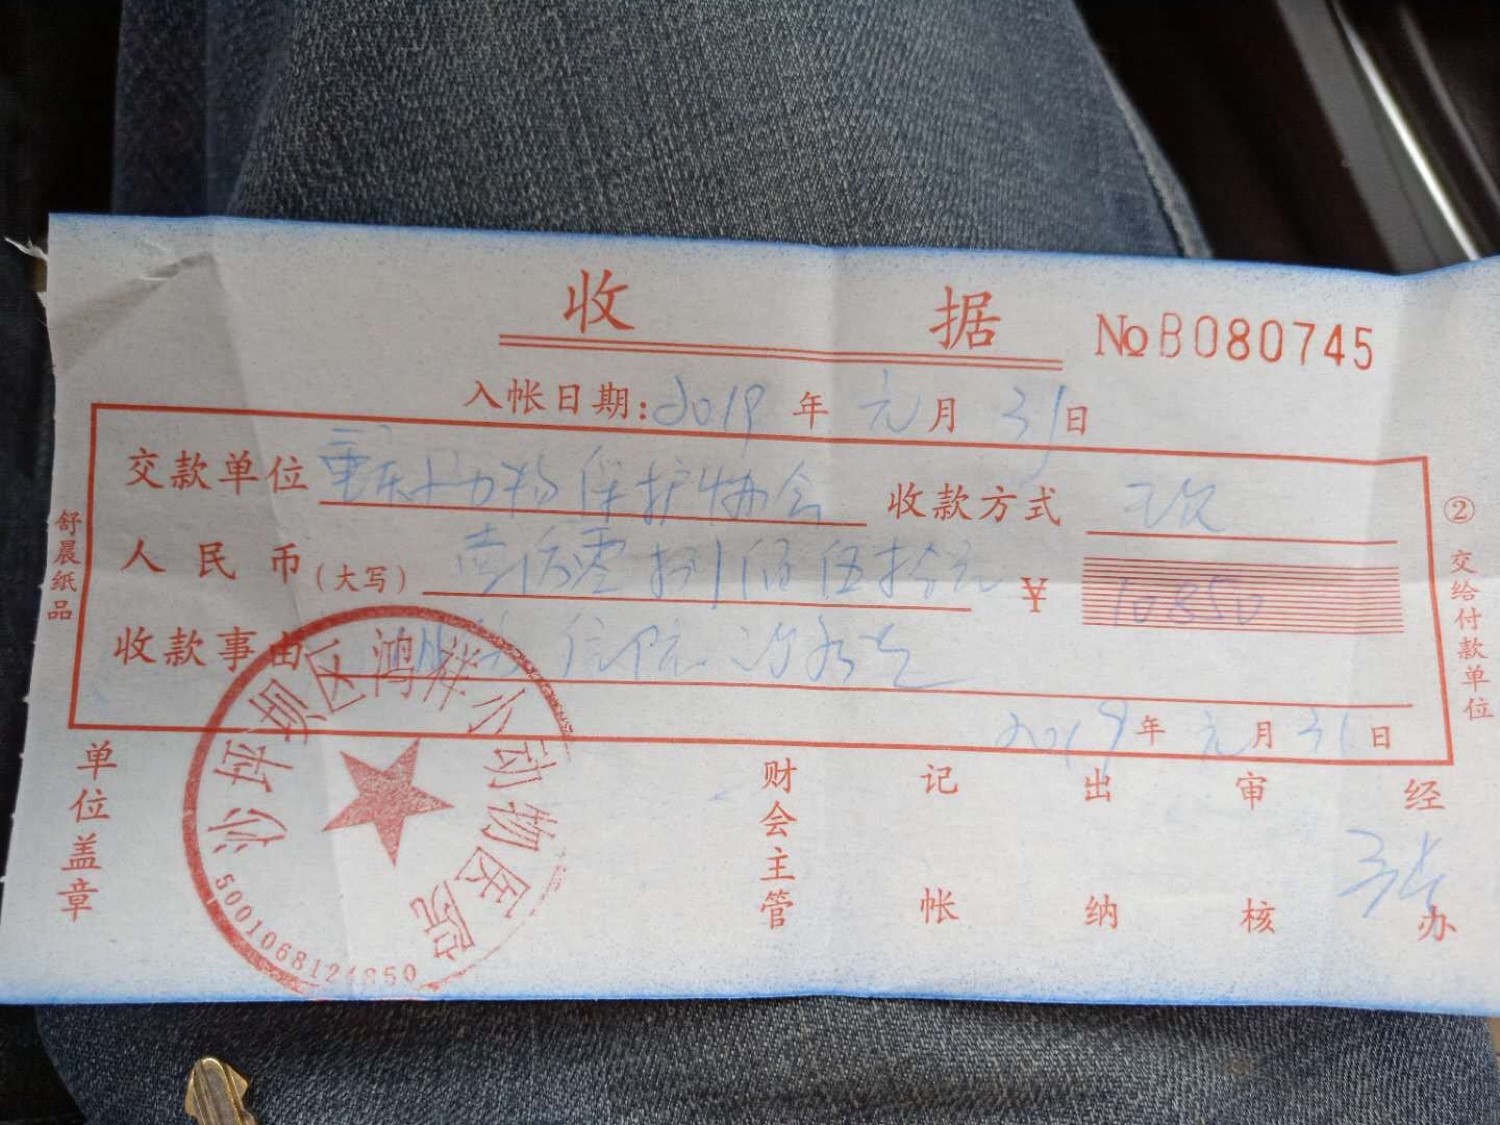 收据 №B080745
入帐日期：2019年元月31日
交款单位 动物保护协会 收款方式
人民币（大写） 壹万零捌佰伍拾元 ¥ 10850
收款事由 住院
2019年元月31日
单位盖章 财会主管 记帐 出纳 审核 经办
舒晨纸品
② 交给付款单位
沙坪坝区鸿祥小动物医院